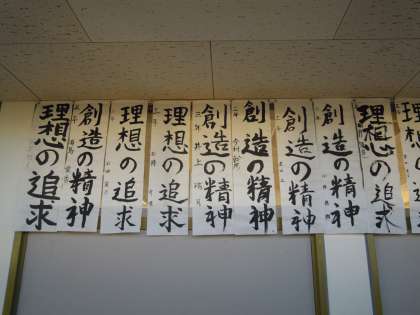 理想の追求
創造の精神
理想の追求
理想の追求
創造の精神
創造の精神
創造の精神
創造の精神
理想の追求
理